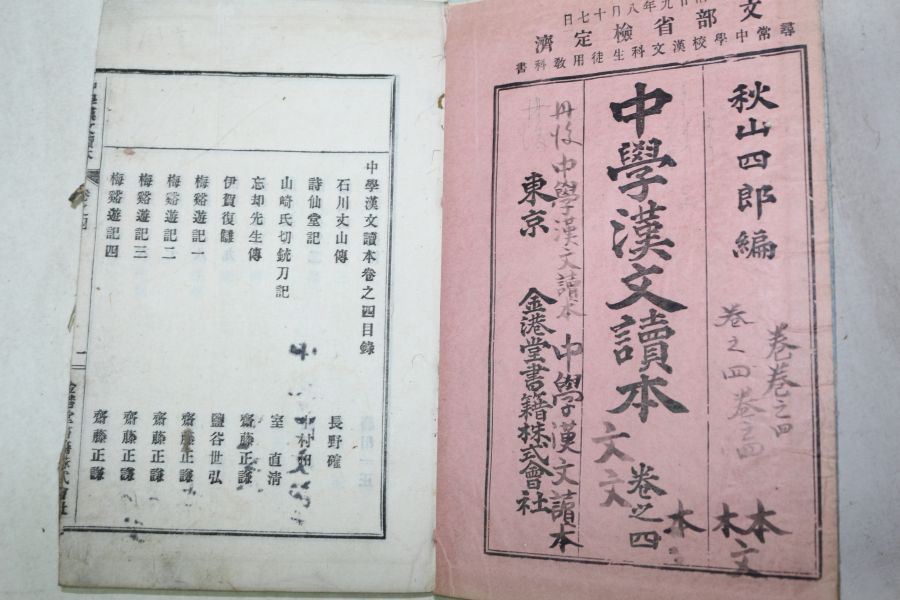 九年八月十七日
文部省檢定濟
尋常中學校漢文科生徒用教科書
秋山四郎編
卷卷之四
卷之四卷之四
本文
本
中學漢文讀本
卷之四
文文
本
丹後中學漢文讀本
中學漢文讀本
東京
金港堂書籍株式會社
中學漢文讀本卷之四目錄
石川丈山傳 長野確
詩仙堂記
山崎氏切銃刀記 室直清
忘却先生傳 齋藤正謙
伊賀復讎 鹽谷世弘
梅谿遊記一 齋藤正謙
梅谿遊記二 齋藤正謙
梅谿遊記三 齋藤正謙
梅谿遊記四 齋藤正謙
中學漢文讀本
卷之四
一
金港堂書籍株式會社